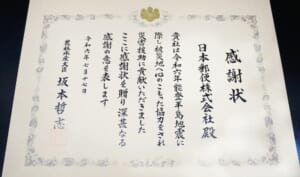 感謝状
日本郵便株式会社殿
貴社は令和六年能登半島地震に
際し被災地へ心のこもった協力をされ
災害救助に貢献いただきました
ここに感謝状を贈り深甚なる
感謝の意を表します
令和六年七月十七日
農林水産大臣 坂本哲志